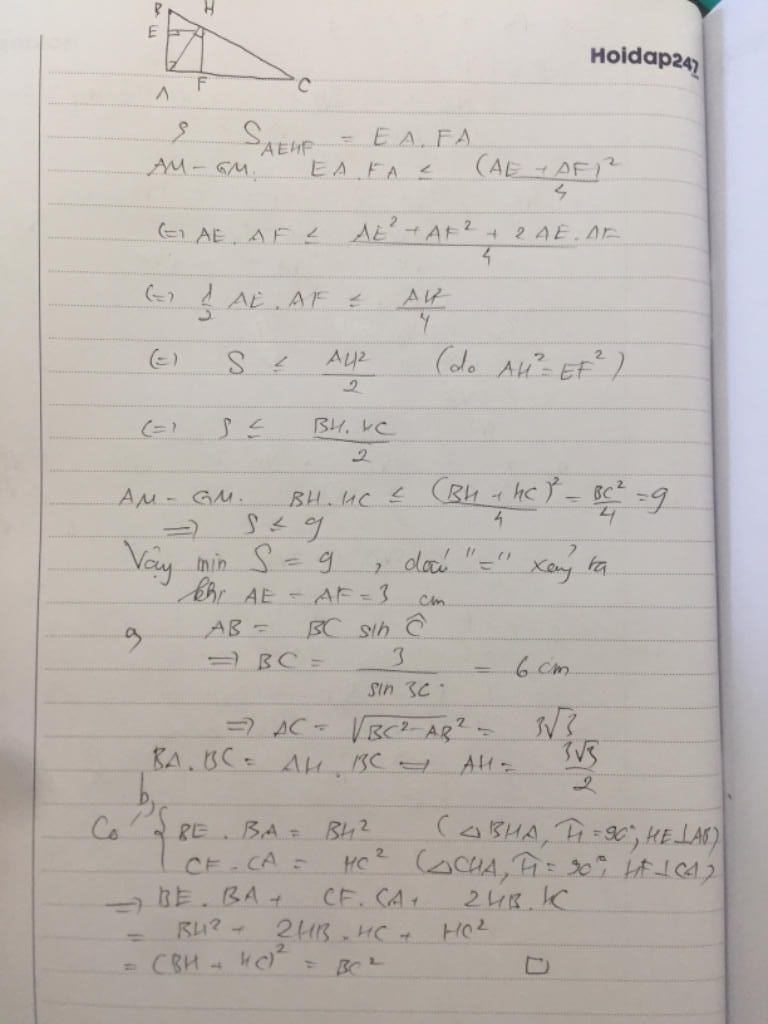 B H
E
Hoidap247
A F C
S_AEHF = EA.FA
AM-GM. EA.FA ≤ (AE + AF)²/4
(=) AE.AF ≤ (AE² + AF² + 2AE.AF)/4
(=) 1/2 AE.AF ≤ AH²/4
(=) S ≤ AH²/2 (do AH² = EF²)
(=) S ≤ BH.HC/2
AM-GM. BH.HC ≤ (BH + HC)²/4 = BC²/4 = 9
=> S ≤ 9
Vậy min S = 9, dấu "=" xảy ra
khi AE = AF = 3 cm
a, AB = BC sin Ĉ
=> BC = 3/sin 30 = 6 cm
=> AC = √(BC² - AB²) = 3√3
BA.BC = AH.BC => AH = 3√3/2
b,
Có { BE.BA = BH² (△BHA, Ĥ = 90°, HE⊥AB)
CF.CA = HC² (△CHA, Ĥ = 90°, HF⊥CA)
=> BE.BA + CF.CA + 2HB.HC
= BH² + 2HB.HC + HC²
= (BH + HC)² = BC² □